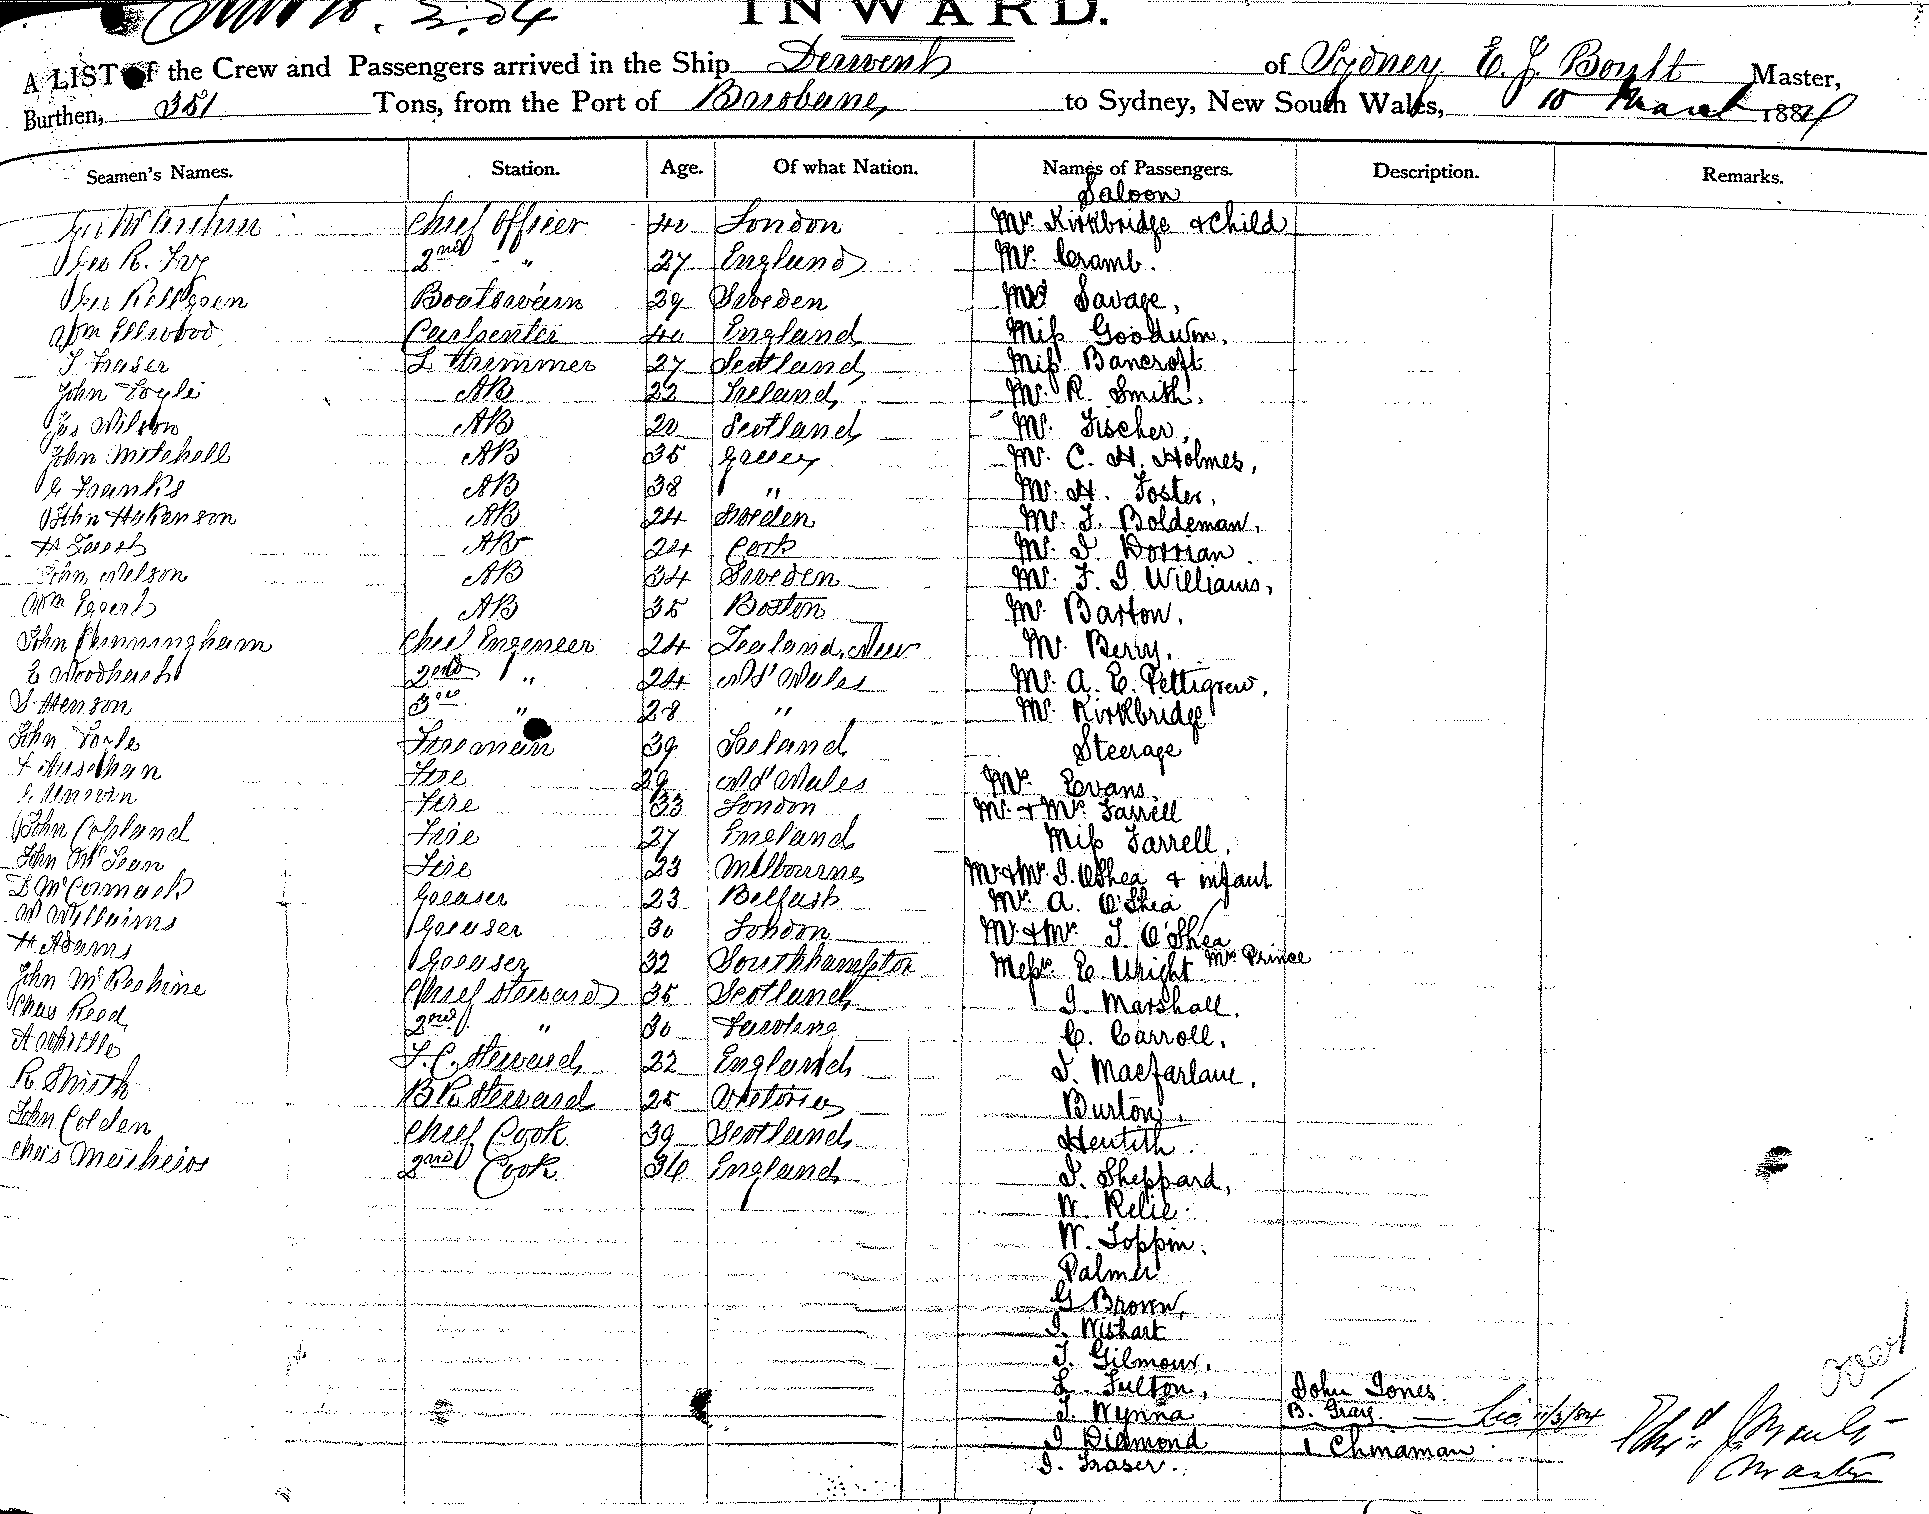 INWARD.
A LIST of the Crew and Passengers arrived in the Ship Derwent of Sydney E. J. Boult Master,
Burthen, 351 Tons, from the Port of Brisbane, to Sydney, New South Wales, 10 March 1884
Seamen's Names. Station. Age. Of what Nation. Names of Passengers. Description. Remarks.
Saloon
Chief Officer 40 London Mrs Kirkbridge & Child
Geo R. Ive 2nd " 27 England Mr. Cramb.
Boatswain 29 Sweden Savage,
Wm Ellwood Carpenter 40 England Miss Goodwin.
J Fraser L Trimmer 27 Scotland Miss Bancroft
John Foyle AB 22 Ireland Mr. R. Smith.
Jas Wilson AB 20 Scotland Mr. Fischer,
John Mitchell AB 35 Mr. C. H. Holmes,
Franks AB 38 " Mr. H. Foster,
John Hakanson AB 24 Sweden Mr. J. Boldeman,
H AB 24 Cork Mr. J Dorrian
John Nelson AB 34 Sweden Mr. F. J Williams,
Wm AB 35 Boston Mr. Barton.
John Cunningham Chief Engineer 24 Zealand, New Mr. Berry.
E Woodhurst 2nd " 24 N S Wales Mr. A. E. Pettigrew.
J. Henson 3rd " 28 " Mr. Kirkbridge
John Foyle Fireman 39 Ireland Steerage
Fire 29 N S Wales Mr. Evans.
Fire 33 London Mr. & Mrs Farrell
John Copland Fire 27 England Miss Farrell.
John McLean Fire 23 Melbourne Mr & Mrs J. O'Shea & infant
D McCormack Greaser 23 Belfast Mr. A. O'Shea
W Williams Greaser 30 London Mr. & Mrs J. O'Shea
H Adams Greaser 32 Southhampton Messrs E. Wright Mrs Prince
John McKeshine Chief Steward 35 Scotland J. Marshall.
Chas Reed 2nd " 30 C. Carroll.
F. C. Steward 22 England J. Macfarlane.
R Smith B R Steward 25 Victoria Burton.
John Colden Chief Cook 39 Scotland Hentith.
2nd Cook 36 England J. Sheppard,
W. Relie.
W. Toppin.
Palmer
G Brown,
J. Wishart
J. Gilmour.
L. Fulton, John Jones
J. Wynna B. Graig
J Diamond 1 Chinaman
J. Fraser.
over
Master